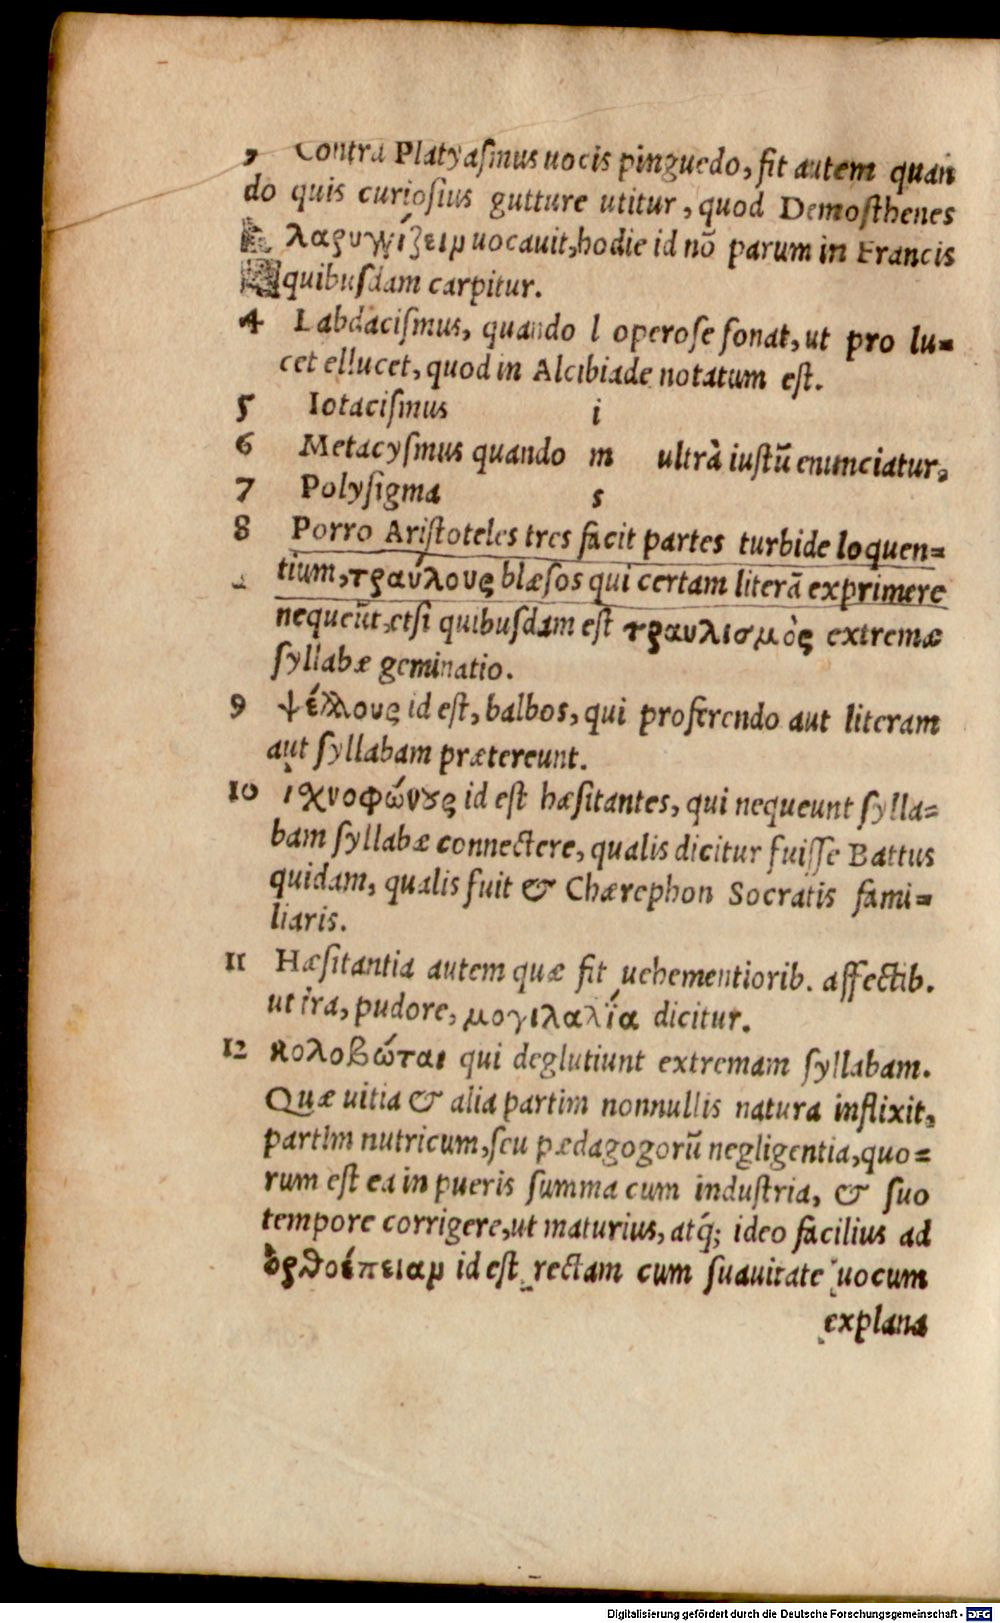 3 Contra Platyaſmus uocis pinguedo, fit autem quan
do quis curioſius gutture utitur, quod Demoſthenes
λαρυγγίζειν uocauit, hodie id nō parum in Francis
quibuſdam carpitur.
4 Labdaciſmus, quando l operoſe ſonat, ut pro lu=
cet ellucet, quod in Alcibiade notatum eſt.
5 Iotaciſmus i
6 Metacyſmus quando m ultrà iuſtū enunciatur,
7 Polyſigma s
8 Porro Ariſtoteles tres facit partes turbide loquen=
tium, τραύλους blæſos qui certam literā exprimere
nequeūt, etſi quibuſdam eſt τραυλισμὸς extremæ
ſyllabæ geminatio.
9 ψέλλους id eſt, balbos, qui proferendo aut literam
aut ſyllabam prætereunt.
10 ιχνοφώνȣς id eſt hæſitantes, qui nequeunt ſylla=
bam ſyllabæ connectere, qualis dicitur fuiſſe Battus
quidam, qualis fuit & Chærephon Socratis fami=
liaris.
11 Hæſitantia autem quæ fit uehementiorib. affectib.
ut ira, pudore, μογιλαλία dicitur.
12 κολοβώται qui deglutiunt extremam ſyllabam.
Quæ uitia & alia partim nonnullis natura inflixit,
partim nutricum, ſeu pædagogorū negligentia, quo=
rum eſt ea in pueris ſumma cum induſtria, & ſuo
tempore corrigere, ut maturius, atq́; ideo facilius ad
ὀρθοέπειαν id eſt rectam cum ſuauitate uocum
explana
Digitalisierung gefördert durch die Deutsche Forschungsgemeinschaft - DFG